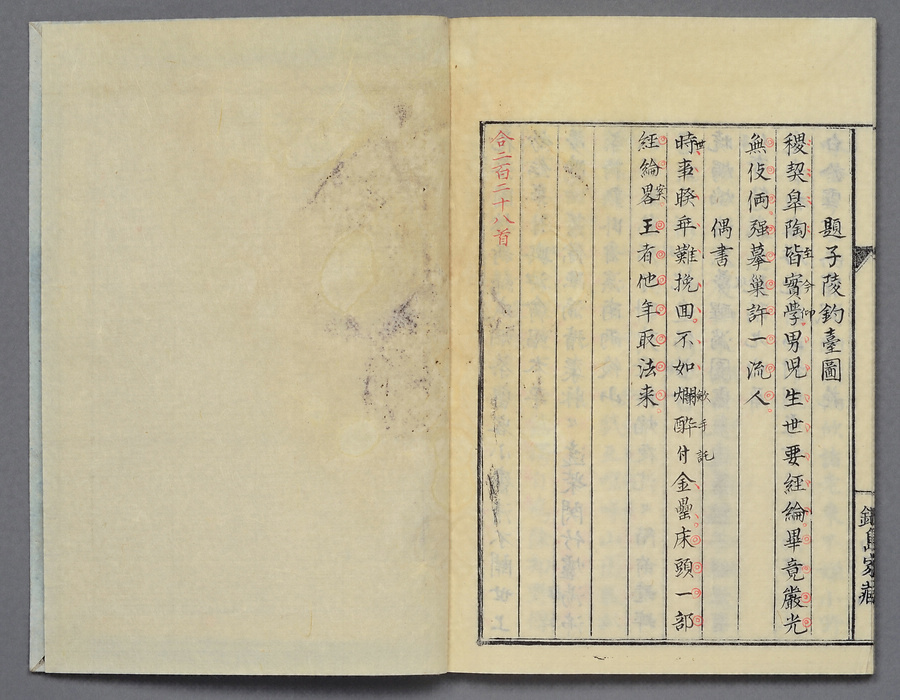 鍋島家藏
題子陵釣臺圖
稷契皐陶皆實學男児生世要經綸畢竟嚴光
至今仰
無伎倆强摹巢許一流人
偶書
時事睽乖難挽回不如爛酔付金罍床頭一部
世
手託
經綸畧王者他年取法来
合二百二十八首